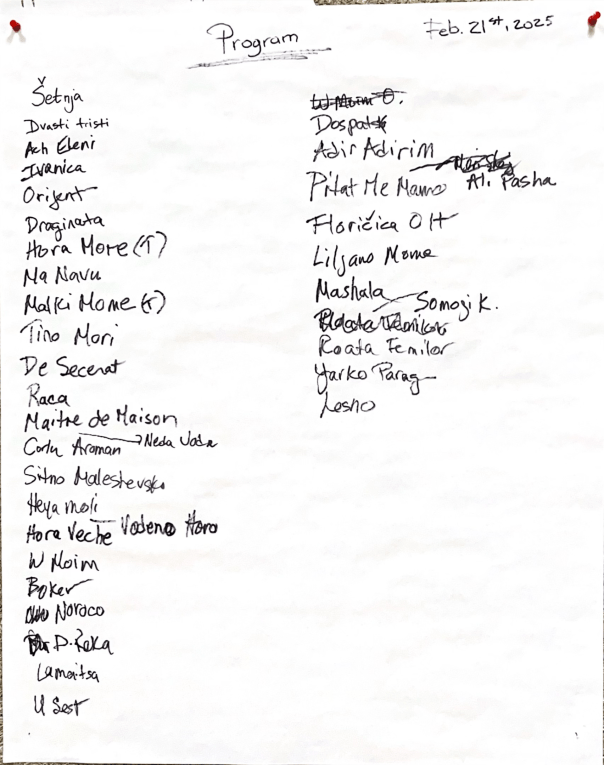 Program
Feb. 21st, 2025
Šetnja
Dvasti tristi
Ach Eleni
Ivanica
Orijent
Draginata
Hora More (T)
Na Navu
Malki Mome (T)
Tino Mori
De Secerat
Raca
Maitre de Maison
Corlu Aroman
Neda Voda
Sitno Maleshevsko
Heya moli
Hora Veche Vodeno Horo
W Moim
Boker
Noroco
D. Reka
Lamaitsa
U Sest
W Moim O.
Dospatsk
Adir Adirim
Pitat Me Mamo Ali Pasha
Floričica Olt
Liljano Mome
Mashala
Somogi K.
Roata Femilor
Yarko Parag
Lesno